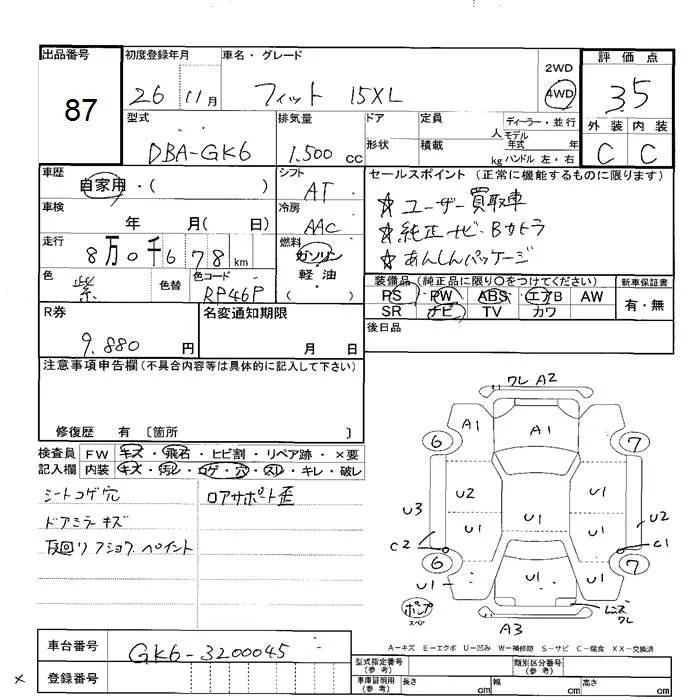 出品番号
87
初度登録年月
26 11月
車名・グレード
フィット 15XL
2WD
4WD
評価点
3.5
外装 内装
C C
型式
DBA-GK6
排気量
1.500 cc
ドア
形状
定員 人
積載 kg
ディーラー・並行
モデル年式 年
ハンドル 左・右
車歴
自家用・( )
シフト
AT
車検
年 月( 日)
冷房
AAC
走行
8万0千678km
燃料
ガソリン
軽油
( )
色
紫
色替
色コード
RP46P
セールスポイント(正常に機能するものに限ります)
☆ユーザー買取車
☆純正ナビ・Bカメラ
☆あんしんパッケージ
装備品(純正品に限り○をつけてください)
PS PW ABS エアB AW
SR ナビ TV カワ
新車保証書
有・無
R券
9.880円
名変通知期限
月 日
後日品
注意事項申告欄(不具合内容等は具体的に記入して下さい)
修復歴 有 〔箇所 〕
検査員記入欄
FW キズ・飛石・ヒビ割・リペア跡・×要
内装 キズ・汚レ・コゲ・穴・スレ・キレ・破レ
シートコゲ穴
ロアサポート歪
ドアミラーキズ
ワレ A2
6 A1 A1 7
U2 U1
U3 U1 U1 U1 U2
C2 C1
6 7
U1 U1 U1
スペア
A3
レンズワレ
A-キズ E-エクボ U-凹み W-補修跡 S-サビ C-腐食 XX-交換済
車台番号
GK6-3200045
登録番号
×
型式指定番号(参考)
類別区分番号(参考)
車庫証明用(参考)
長さ cm
幅 cm
高さ cm